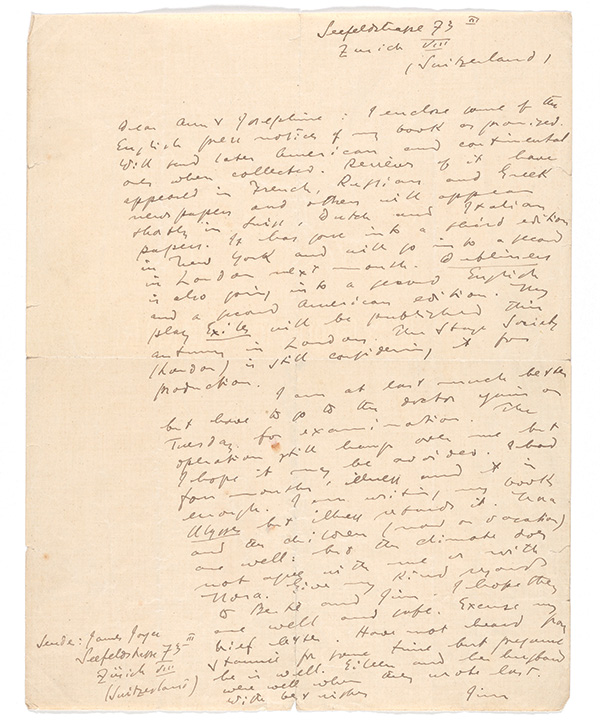 Seefeldstrasse 73 III
Zurich VIII
(Switzerland)
Dear Aunt Josephine: I enclose some of the
English press notices of my book as promised.
Will send later American and continental
ones when collected. Reviews of it have
appeared in French, Russian and Greek
newspapers and others will appear
shortly in Swiss, Dutch and Italian
papers. It has gone into a third edition
in New York and will go into a second
in London next month. Dubliners
is also going into a second English
and a second American edition. My
play Exiles will be published this
autumn in London. The Stage Society
(London) is still considering it for
production.
I am at last much better
but have to go to the doctor again on
Tuesday for examination. The
operation still hangs over me but
I hope it may be avoided. I had
four months' illness and it is
enough. I am writing my book
Ulysses but illness retards it. Nora
and the children (now on vacation)
are well: but the climate does
not agree with me or with
Nora. Give my kind regards
to and Jim. I hope they
are well and safe. Excuse my
brief letter. Have not heard from
Stannie for some time but presume
he is well. Eileen and her husband
were well when they wrote last.
With best wishes Jim
Sender: James Joyce
Seefeldstrasse 73 III
Zürich VIII
(Switzerland)